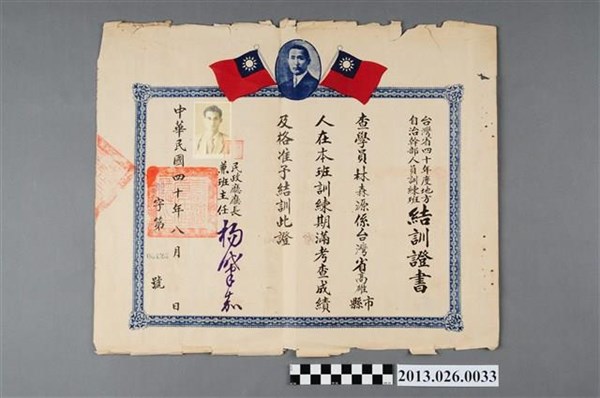 台灣省四十年度地方
自治幹部人員訓練班
結訓證書
查學員林森源係台灣省高雄市縣
人在本班訓練期滿考查成績
及格准予結訓此證
民政廳廳長
兼班主任
楊肇嘉
中華民國四十年八月 日
字第 號
2013.026.0033